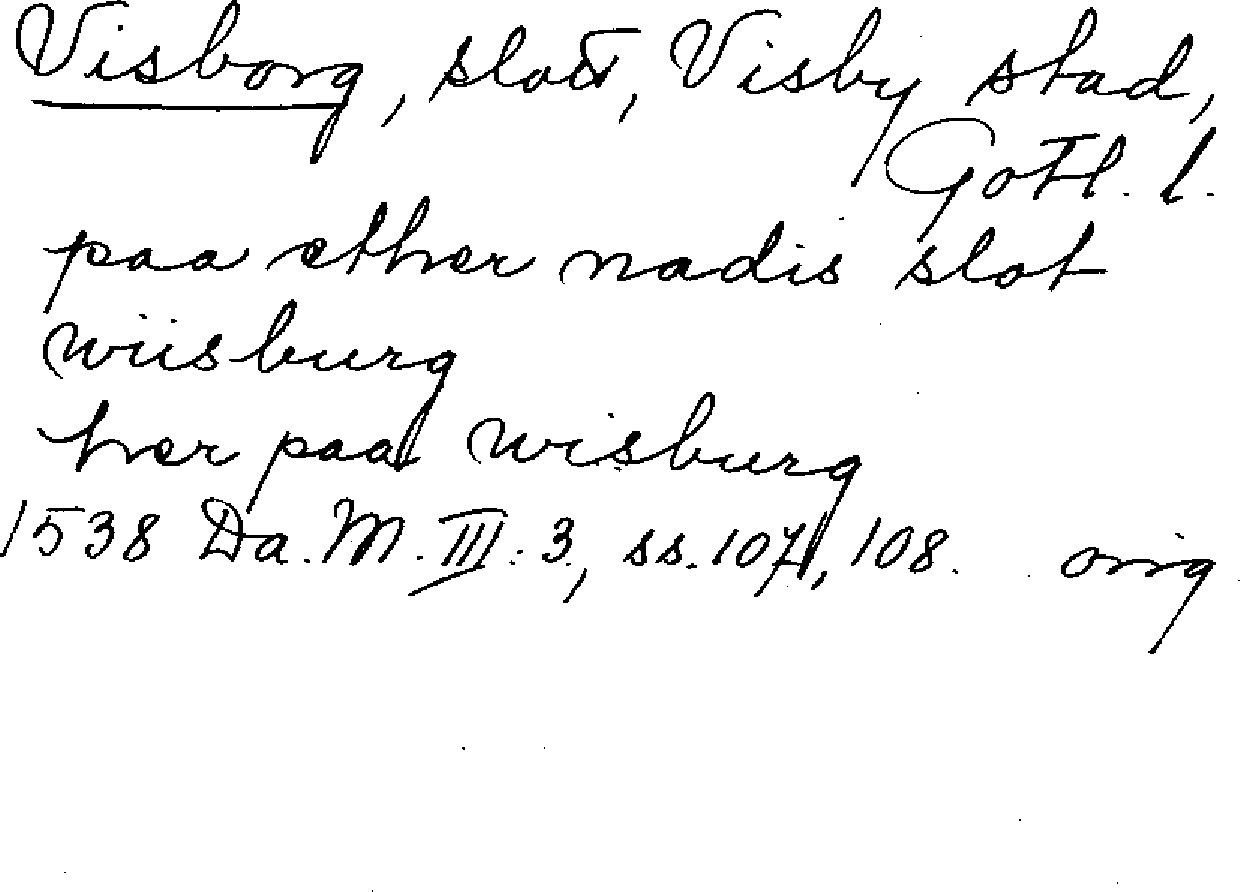 Visborg, slott, Visby stad,
Gotl. l.
paa ether nadis slot
wiisburg
her paa wisburg
1538 Da. M. III. 3, ss. 107, 108. orig.